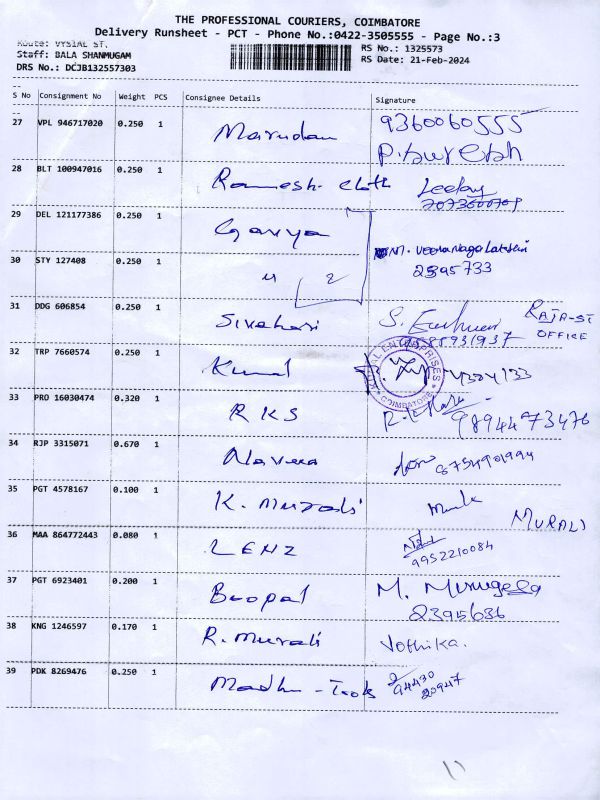 THE PROFESSIONAL COURIERS, COIMBATORE
Delivery Runsheet - PCT - Phone No.:0422-3505555 - Page No.:3
Route: VYSIAL ST,
Staff: BALA SHANMUGAM
DRS No.: DCJB132557303
RS No.: 1325573
RS Date: 21-Feb-2024
S No Consignment No Weight PCS Consignee Details Signature
27 VPL 946717020 0.250 1 Marudam 9360060555
P. Suresh
28 BLT 100947016 0.250 1 Ramesh cloth
29 DEL 121177386 0.250 1 Gavya
30 STY 127408 0.250 1 " 2 2395733
31 DDG 606854 0.250 1 Sivahari S. RAJA-ST
OFFICE
32 TRP 7660574 0.250 1 Kunal
KUNAL ENTERPRISES
COIMBATORE
33 PRO 16030474 0.320 1 RKS 9894473476
34 RJP 3315071 0.670 1 Naveen
35 PGT 4578167 0.100 1 K. Murali MURALI
36 MAA 864772443 0.080 1 LENZ
9952210084
37 PGT 6923401 0.200 1 Boopal M. Murugesa
2395636
38 KNG 1246597 0.170 1 R. Murali Jothika.
39 PDK 8269476 0.250 1 Madhu - Tools 94430
20947